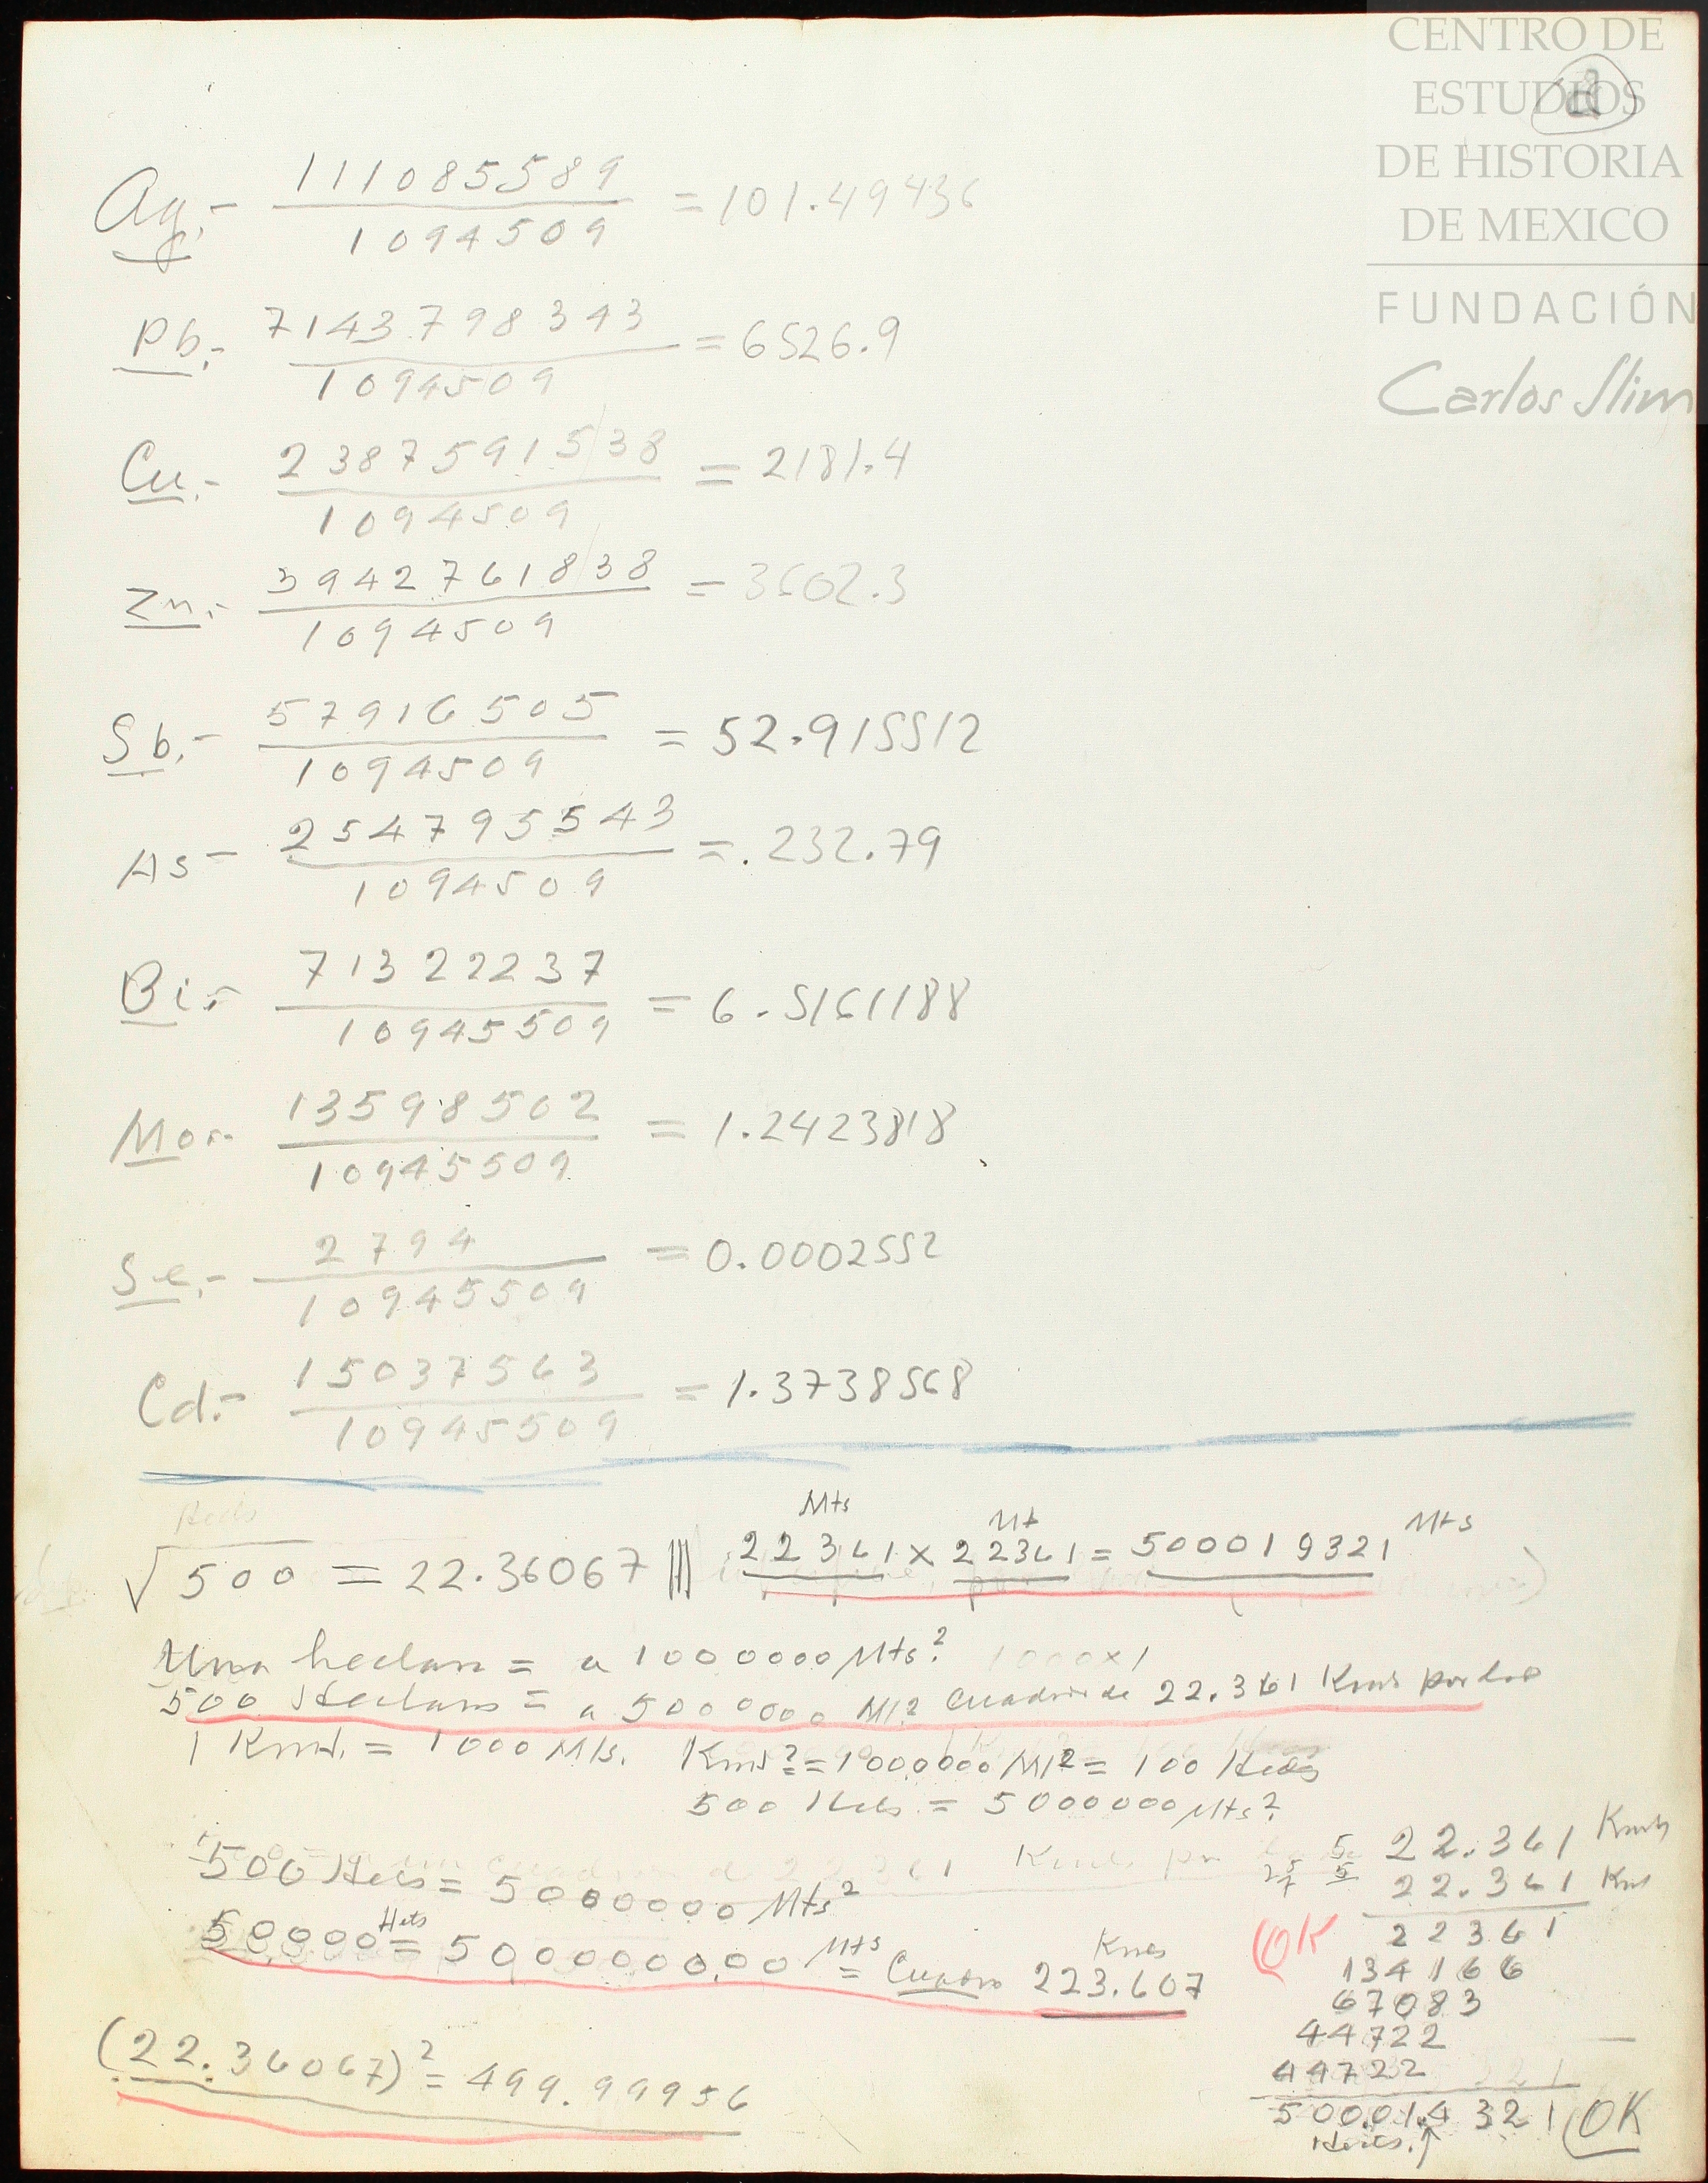 CENTRO DE
ESTUDIOS
DE HISTORIA
DE MEXICO
FUNDACIÓN
Carlos Slim
2
Ag.- 111085589 / 1094509 = 101.49436
Pb.- 7143798343 / 1094509 = 6526.9
Cu.- 2387591538 / 1094509 = 2181.4
Zn.- 3942761838 / 1094509 = 3602.3
Sb.- 57916505 / 1094509 = 52.915512
As - 254795543 / 1094509 = .232.79
Bi.- 71322237 / 10945509 = 6.5161188
Mo.- 13598502 / 10945509 = 1.2423818
Se.- 2794 / 10945509 = 0.0002552
Cd.- 15037563 / 10945509 = 1.3738568
Mts Mt Mts
√500 = 22.36067 ||| 22361 x 22361 = 500019321
Una hectara = a 1000000 Mts.2 1000x1
500 Hectaras = a 5000000 Mt.2 Cuadro de 22.361 Kms por lado
1 Kmt. = 1000 Mts. Kms2 = 1000,000 Mt2 = 100 Hects
500 Hets = 5000000 Mts2.
500 Hets = 5000000 Mts2
50000 Hets = 500000000 Mts = Cuadro 223.607 Kmes
(22.36067)2 = 499.99956
22.361 Kmts
22.361 Km
OK 22361
134166
67083
44722
44722
500.014321 OK
Hects. ↑